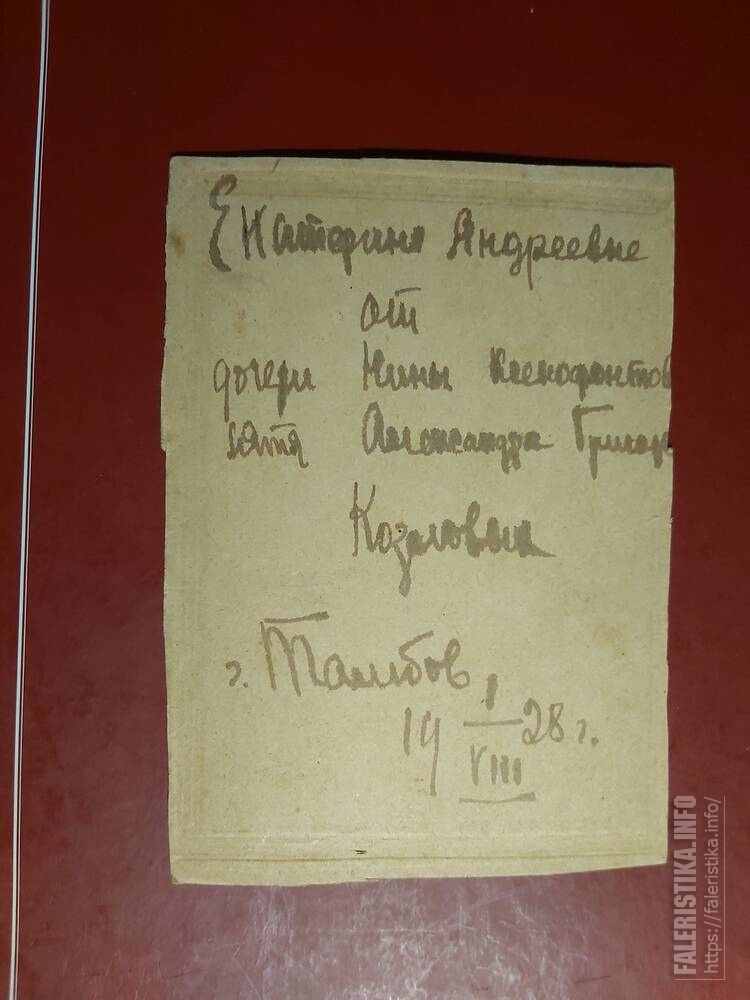 Екатерине Андреевне
от
дочери Нины Ксенофонтов
зятя Александра Григор
Козловых
г. Тамбов,
19 I/VIII 28 г.
FALERISTIKA.INFO
https://faleristika.info/